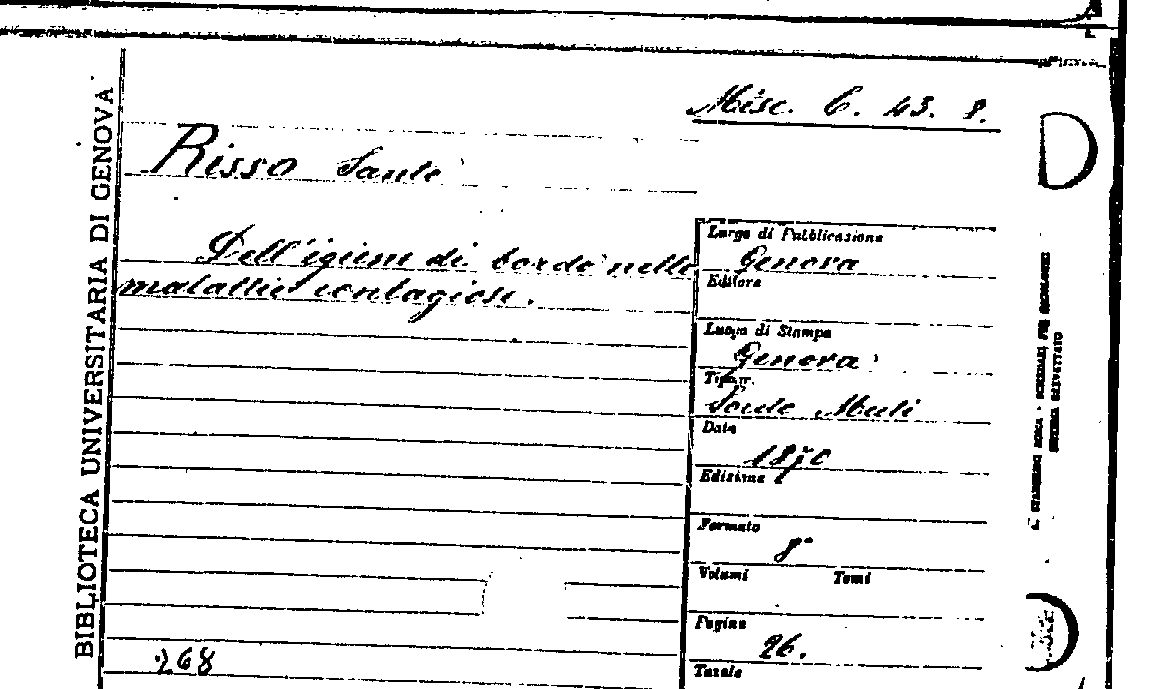 BIBLIOTECA UNIVERSITARIA DI GENOVA
Misc. C. 43. 8.
Risso Sante
Dell'igiene di bordo nelle
malattie contagiose.
Luogo di Pubblicazione
Genova
Editore
Luogo di Stampa
Genova
Tipogr.
Sordo Muti
Data
1870
Edizione
Formato
8°
Volumi Tomi
Pagine
26.
Tavole
268